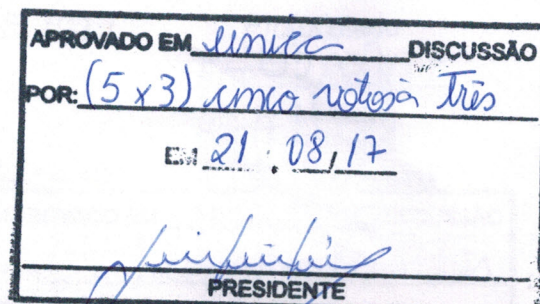 APROVADO EM unica DISCUSSÃO
POR: (5 x 3) cinco votos à três
EM 21 . 08, 17
PRESIDENTE